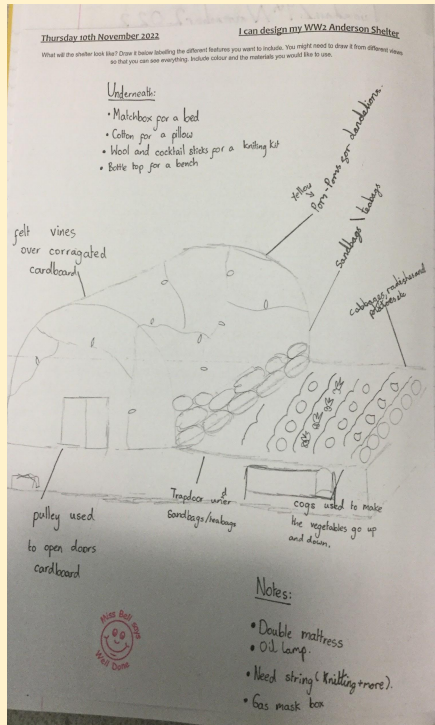 Thursday 10th November 2022
I can design my WW2 Anderson Shelter
What will the shelter look like? Draw it below labelling the different features you want to include. You might need to draw it from different views
so that you can see everything. Include colour and the materials you would like to use.
Underneath:
• Matchbox for a bed
• Cotton for a pillow
• Wool and cocktail sticks for a kniting kit
• Bottle top for a bench
Yellow
Pom-Poms for dandelions.
Sandbags \ teabags
cabbages, radishes and
potatoes etc
felt vines
over corragated
cardboard
pulley used
to open doors
cardboard
Trapdoor under
Sandbags/teabags
cogs used to make
the vegetables go up
and down.
Miss Bell says
Well Done
Notes:
• Double mattress
• Oil Lamp.
• Need string (Knitting + more).
• Gas mask box